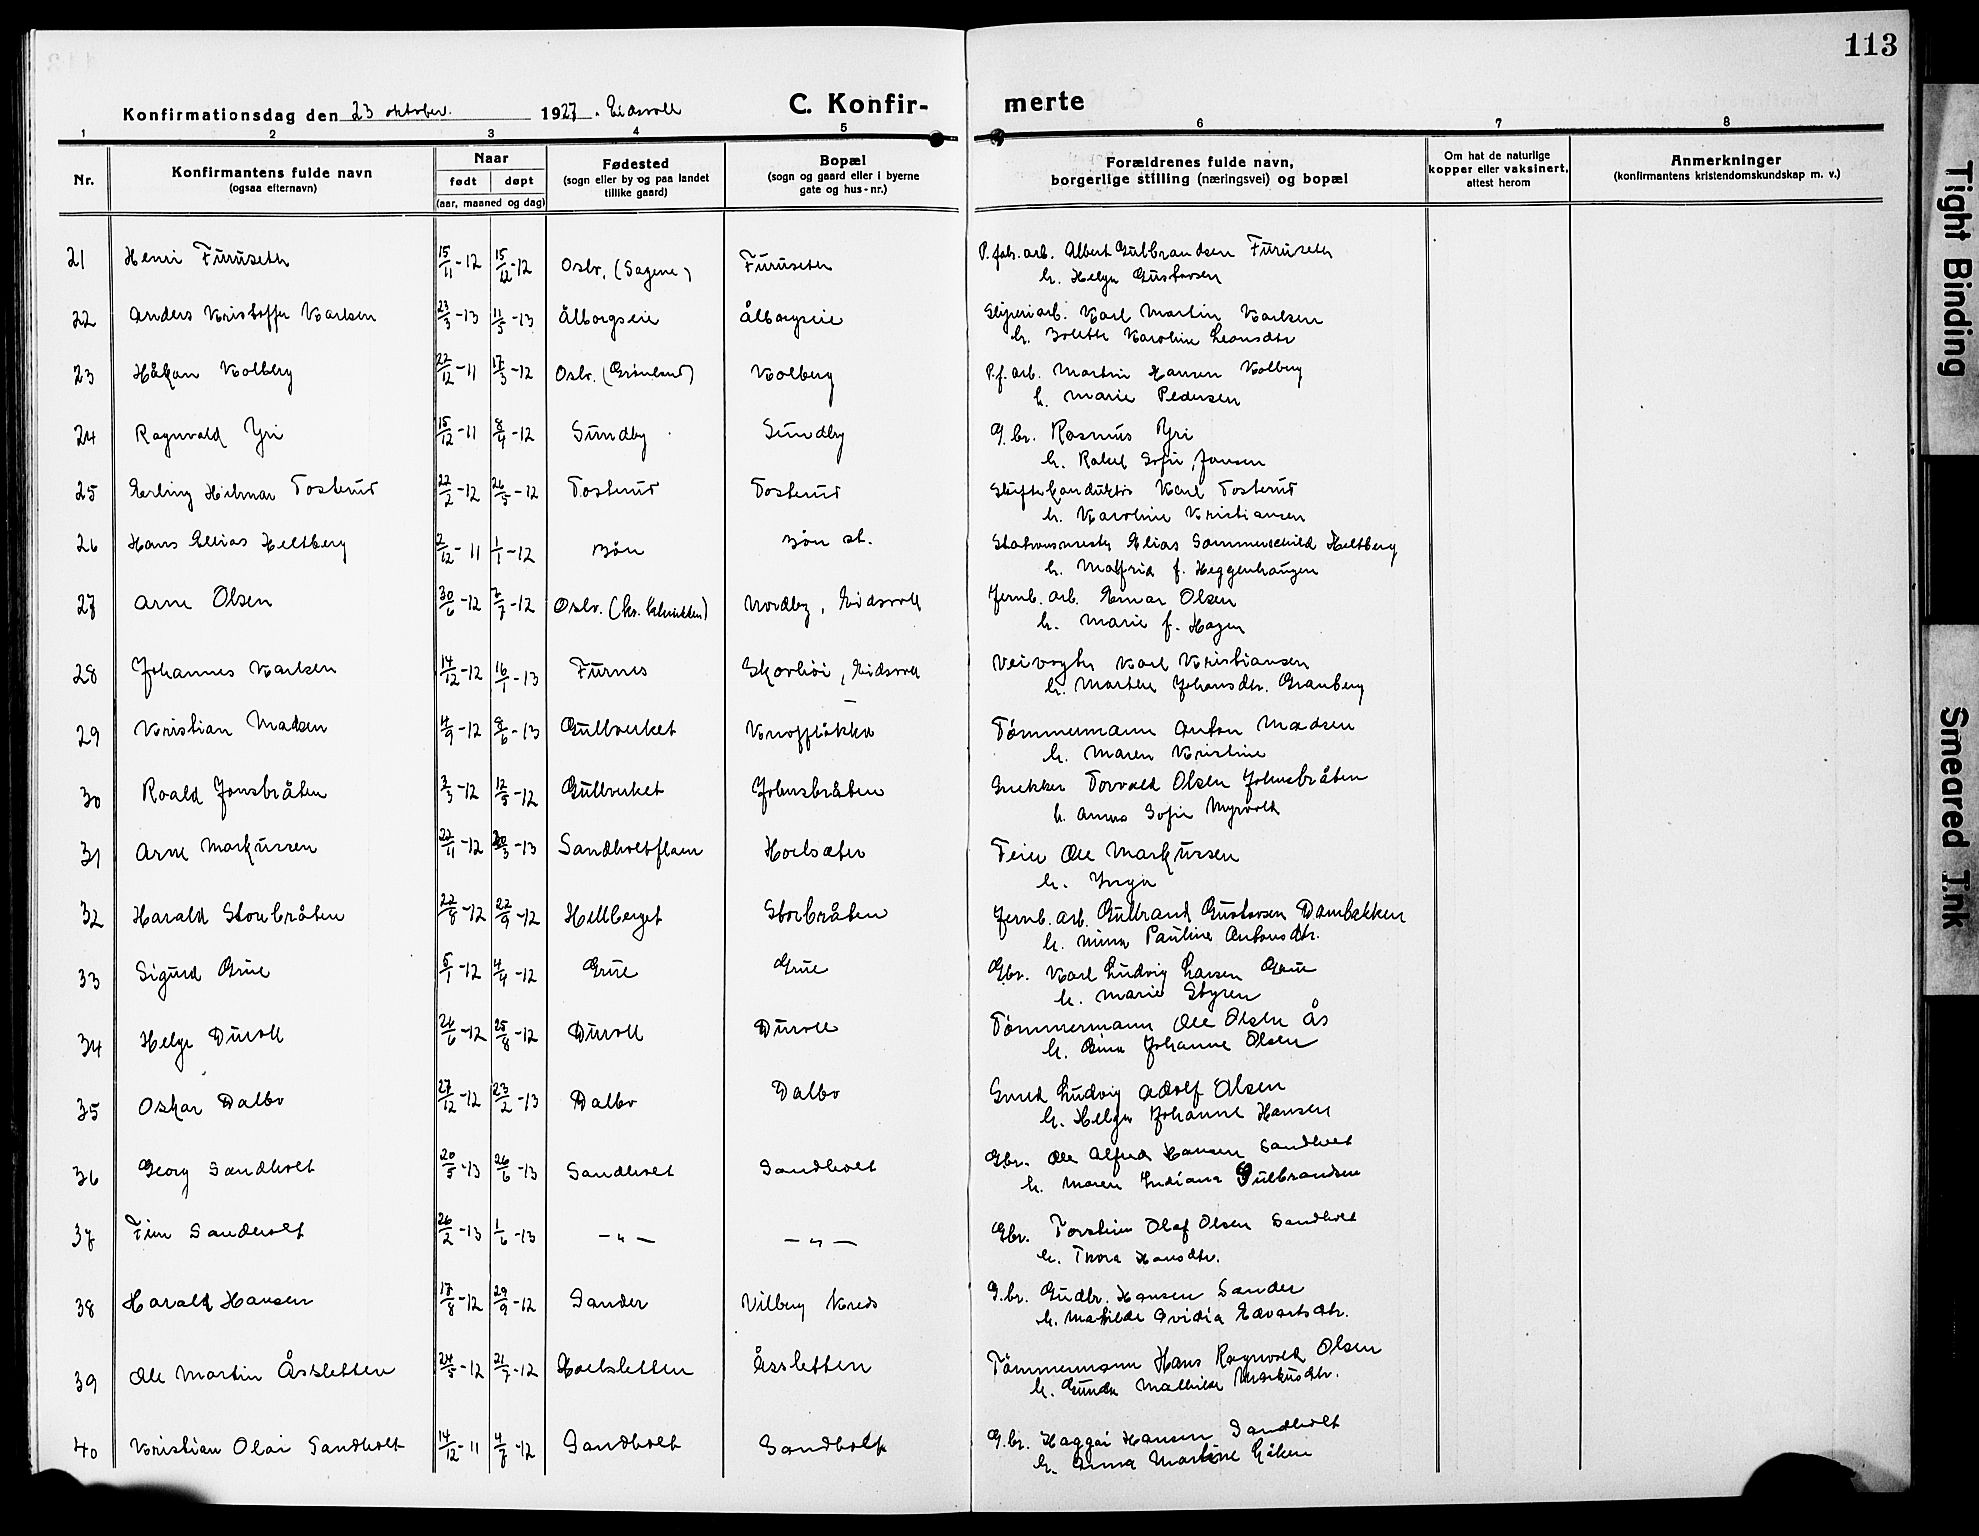 113
Konfirmationsdag den 23 oktober. 1927. Eidsvoll
C. Konfir- merte
1 2 3 4 5 6 7 8
Nr.
Konfirmantens fulde navn
(ogsaa efternavn)
Naar
født døpt
(aar, maaned og dag)
Fødested
(sogn eller by og paa landet
tillike gaard)
Bopæl
(sogn og gaard eller i byerne
gate og hus-nr.)
Forældrenes fulde navn,
borgerlige stilling (næringsvei) og bopæl
Om hat de naturlige
kopper eller vaksinert,
attest herom
Anmerkninger
(konfirmantens kristendomskundskap m. v.)
21 Henri Furuseth 15/11-12 15/12-12 Oslo. (Sagene) Furuseth P.fabr.arb. Albert Gulbrandsen Furuseth
h. Helga Gustavsen
22 Anders Kristoffer Karlsen 23/3-13 11/5-13 Ålborgseie Ålborgseie Sliperiarb. Karl Martin Karlsen
h. Bolette Karoline Leonsdtr
23 Håkon Kolberg 22/12-11 17/3-12 Oslo. (Grønland) Kolberg P.f. arb. Martin Hansen Kolberg
h. Marie Pedersen
24 Ragnvald Yri 15/12-11 8/4-12 Sundby Sundby G.br. Rasmus Yri
h. Rakel Sofie Jansen
25 Erling Hilmar Tosterud 22/2-12 26/5-12 Tosterud Tosterud Skiftekonduktør Karl Tosterud
h. Karoline Kristiansen
26 Hans Elias Heltberg 2/12-11 1/1-12 Bøn Bøn st. Stationsmester Elias Sommerschild Heltberg
h. Malfrid f. Heggenhaugen
27 Arne Olsen 30/6-12 7/7-12 Oslo. Nordby, Eidsvoll Jernb. arb. Einar Olsen
h. Marie f. Hagen
28 Johannes Karlsen 14/12-12 16/1-13 Furnes Skovhøi, Eidsvoll Veivogter Karl Kristiansen
h. Marthe Johansdtr. Granberg
29 Kristian Madsen 4/9-12 8/6-13 Gullverket Knoffløkka Tømmermann Anton Madsen
h. Maren Kristine
30 Roald Jonsbråten 3/3-12 12/5-12 Gullverket Johnsbråten Snekker Torvald Olsen Johnsbråten
h. Anna Sofie Myrvold
31 Arne Markussen 22/11-12 30/3-13 Sandholtflaen Hoelsæter Feier Ole Markussen
h. Inga
32 Harald Storbråten 22/8-12 22/9-12 Hellberget Storbråten Jernb. arb. Gulbrand Gustavsen Dambakken
h. Mina Pauline Antonsdtr.
33 Sigurd Grue 5/1-12 4/4-12 Grue Grue Gbr. Karl Ludvig Larsen Grue
h. Marie Styren
34 Helge Duvoll 26/6-12 25/8-12 Duvoll Duvoll Tømmermann Ole Olsen Ås
h. Gina Johanne Olsen
35 Oskar Dalbo 27/12-12 23/2-13 Dalbo Dalbo Smed Ludvig Adolf Olsen
h. Helga Johanne Hansen
36 Georg Sandholt 20/5-13 26/6-13 Sandholt Sandholt Gbr. Ole Alfred Hansen Sandholt
h. Maren Indiana Gulbrandsen
37 Finn Sandholt 26/2-13 1/6-13 -"- -"- Gbr. Torstein Olaf Olsen Sandholt
h. Thora Hansdtr.
38 Harald Hansen 17/8-12 29/9-12 Sander Vilberg Kreds G.br. Gudbr. Hansen Sander
h. Mathilde Ovidia Edvartsdtr.
39 Ole Martin Åssletten 24/5-12 21/7-12 Hoelsletten Åssletten Tømmermann Hans Ragnvald Olsen
h. Gunda Mathilde Markusdtr.
40 Kristian Olai Sandholt 14/12-11 4/7-12 Sandholt Sandholt G.br. Haggai Hansen Sandholt
h. Anna Martine Løken
Tight Binding
Smeared Ink